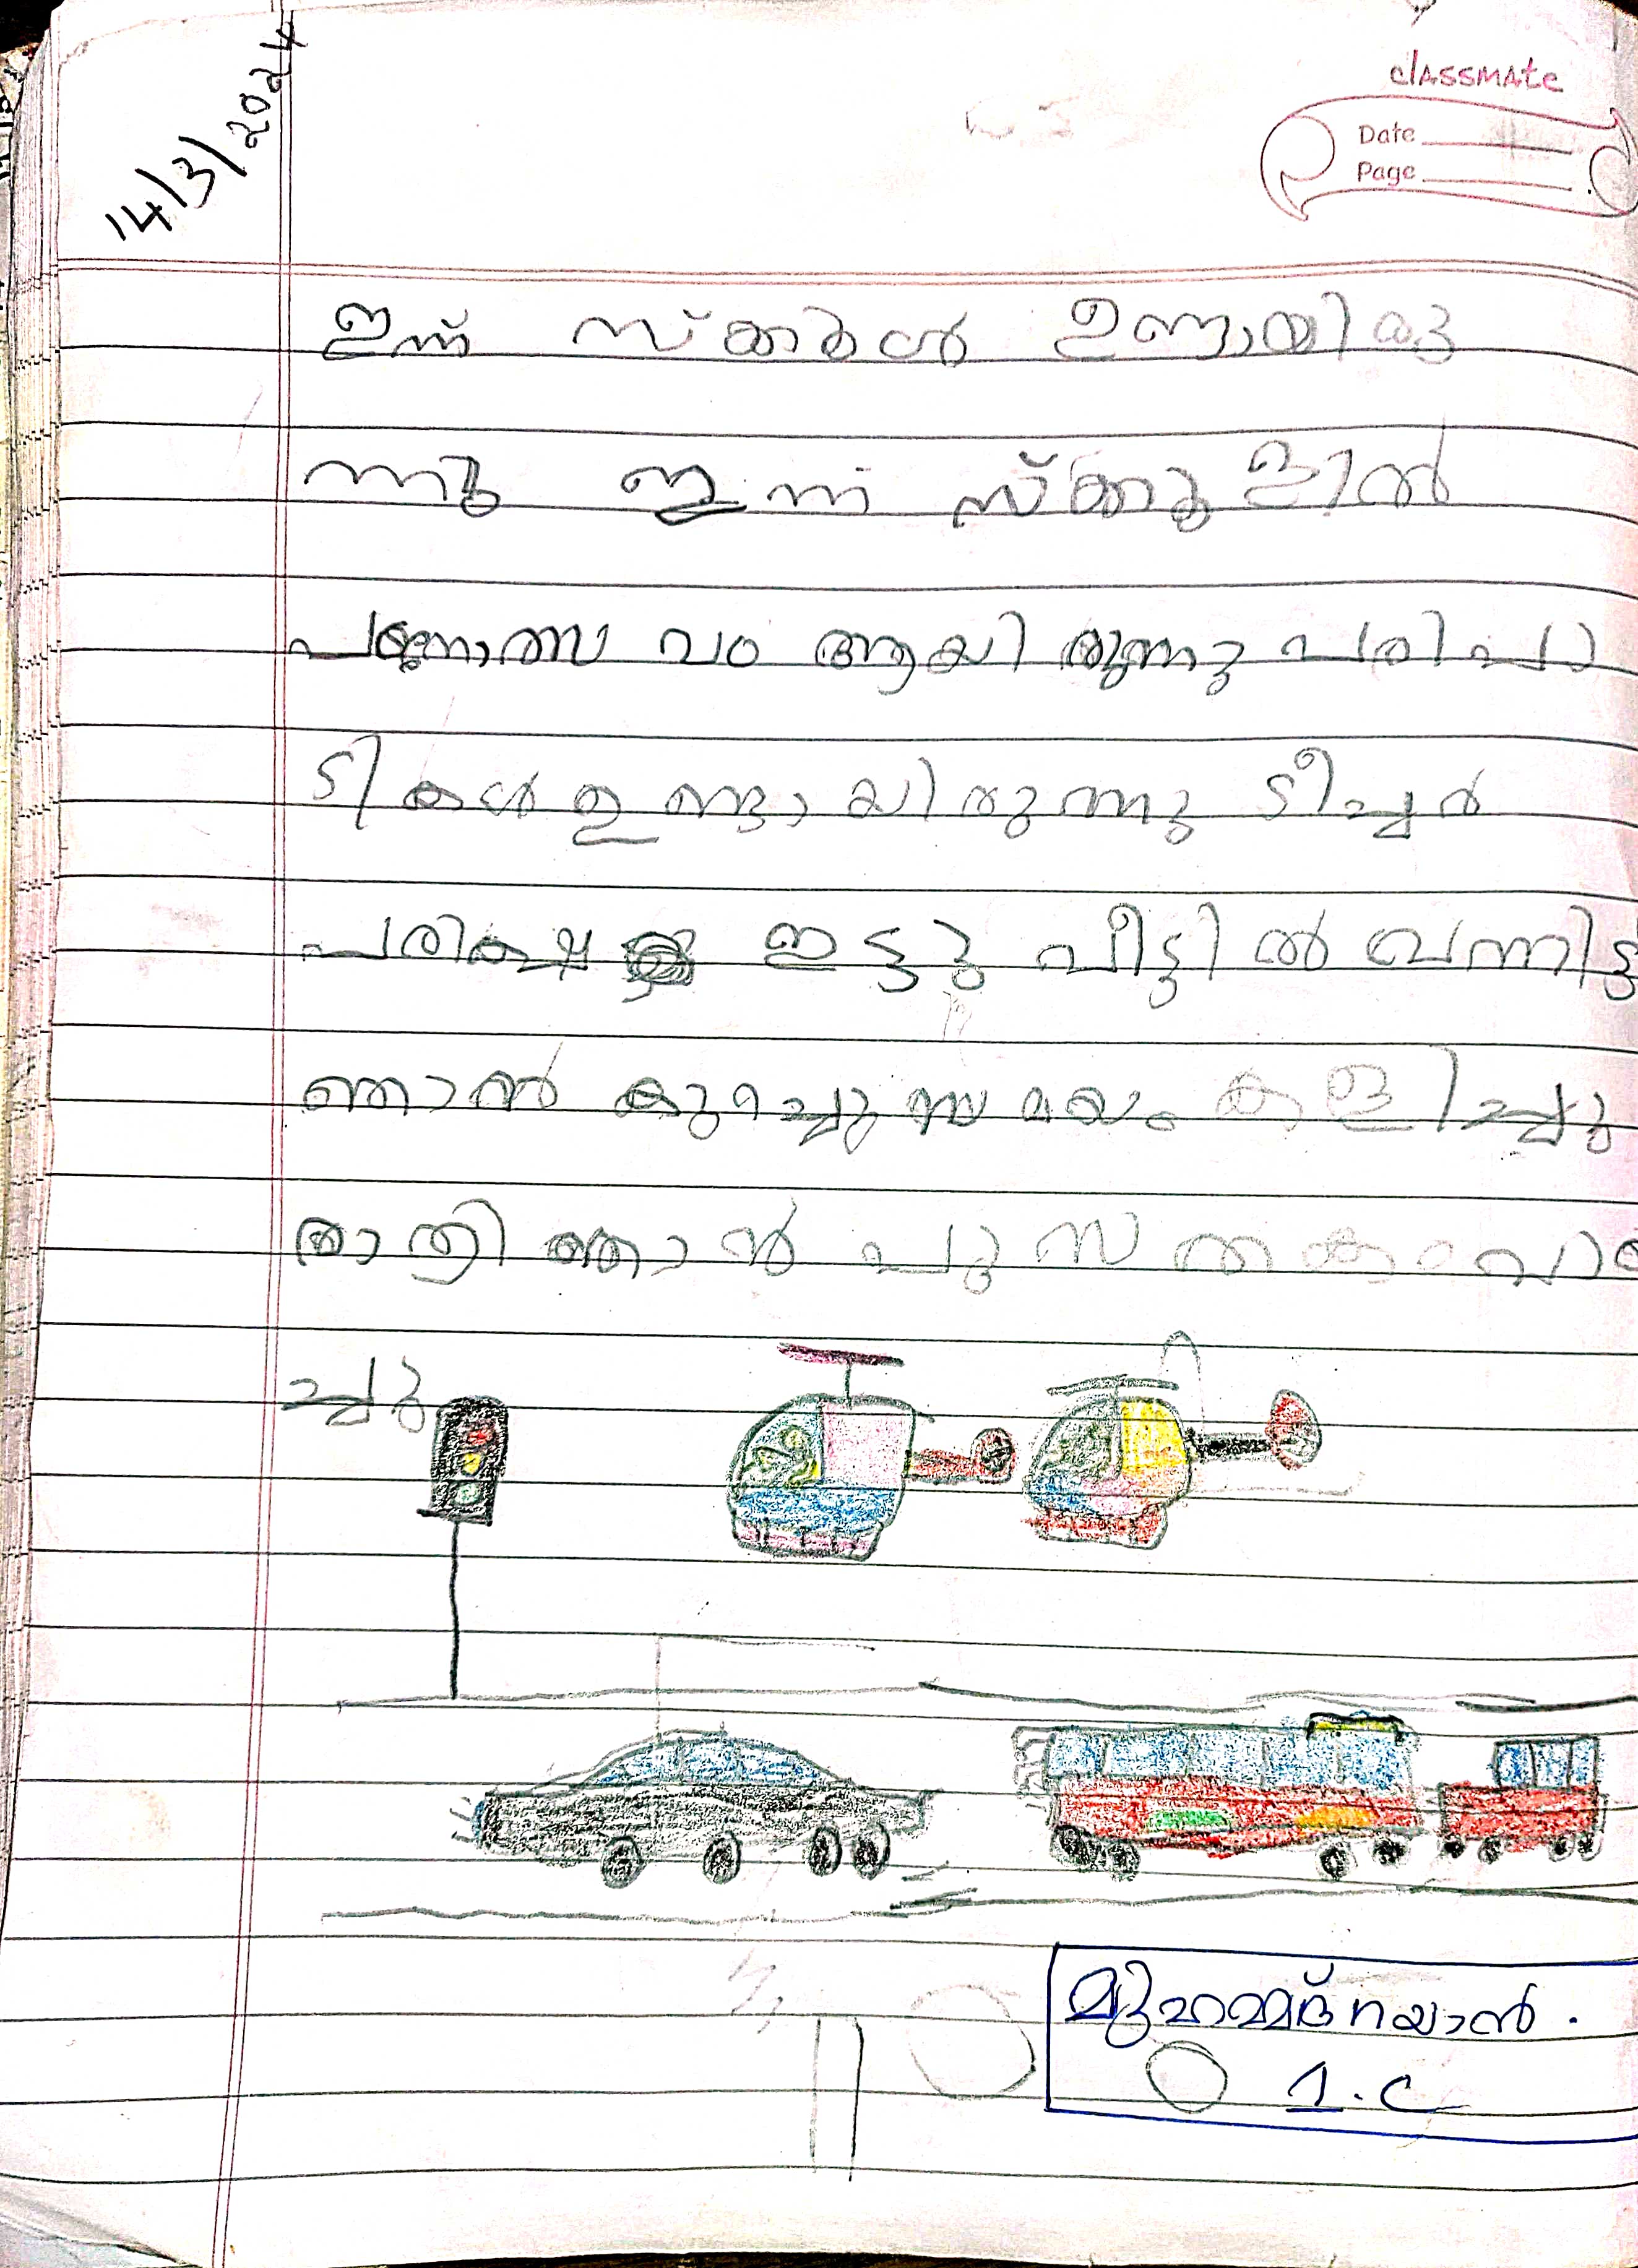 classmate
Date
Page
14/3/2024
ഇന്ന് സ്കൂൾ ഉണ്ടായിരു
ന്നു ഇന്ന് സ്ക്കൂളിൽ
പഠനോത്സ വം ആയി രുന്നു പരിപാ
ടികൾ ഉണ്ടായിരുന്നു ടീച്ചർ
പരിക്ഷ ഇട്ടു വീട്ടിൽ വന്നിട്ട്
ഞാൻ കുറച്ചു സമയം കളിച്ചു
രാത്രി ഞാൻ പുസതകം വായി
ച്ചു
മുഹമ്മദ് റയാൻ.
1.C